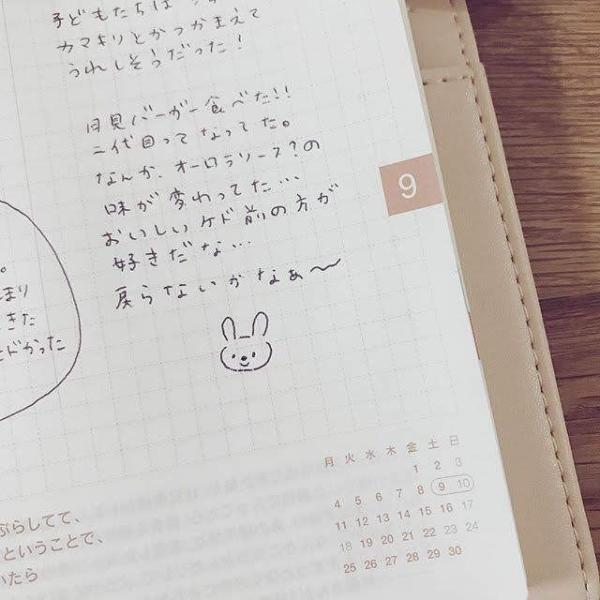 子どもたちは
カマキリとかつかまえて
うれしそうだった!
月見バーガー食べた!!
二代目ってなってた。
なんか、オーロラソース?の
味が変わってた…
おいしいケド前の方が
好きだな…
戻らないかなぁ〜
9
まり
きた
ドかった
月 火 水 木 金 土 日
1 2 3
4 5 6 7 8 9 10
11 12 13 14 15 16 17
18 19 20 21 22 23 24
25 26 27 28 29 30
ぶらしてて、
ということで、
いたら